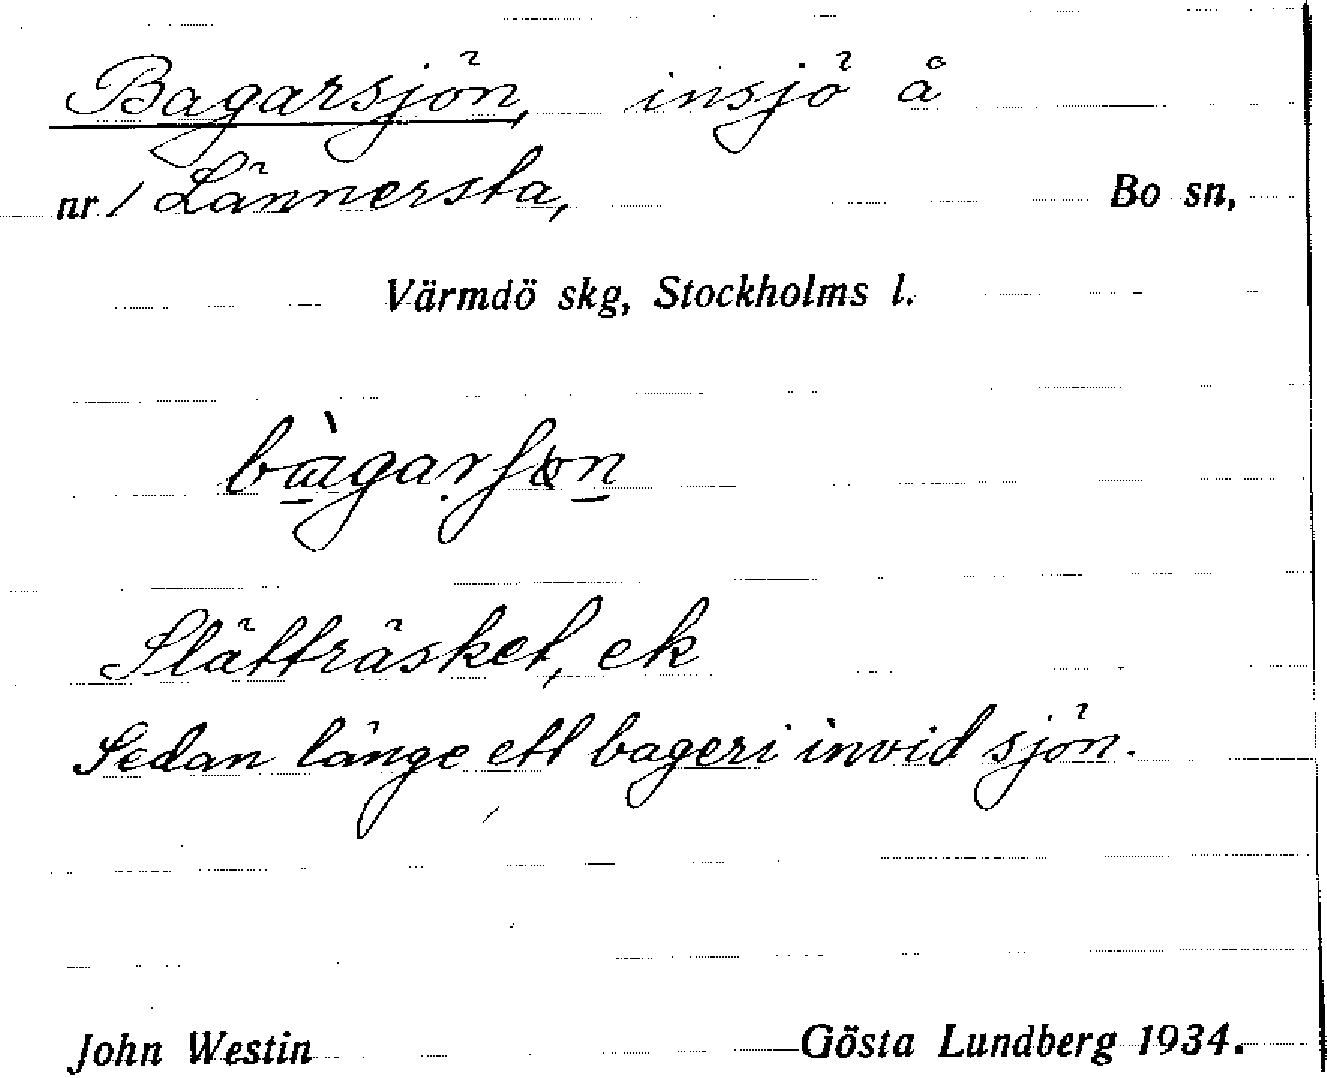 Bagarsjön, insjö å
nr 1 Lännersta, Bo sn,
Värmdö skg, Stockholms l.
Slätträsket, ek
Sedan länge ett bageri invid sjön.
John Westin Gösta Lundberg 1934.